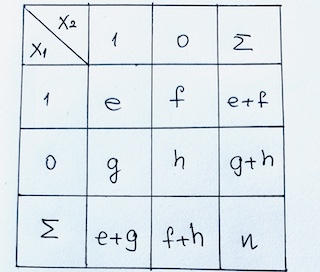 X₂
X₁ 1 0 Σ
1 e f e+f
0 g h g+h
Σ e+g f+h n